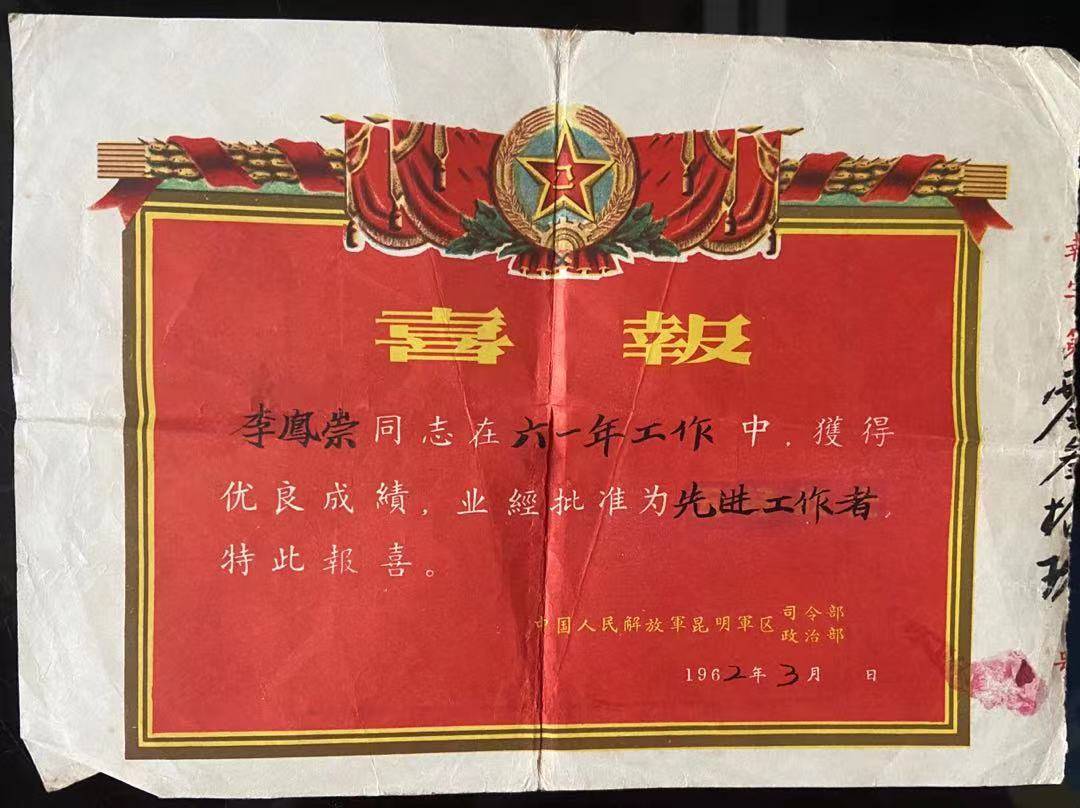 喜報
李鳳崇同志在六一年工作中，獲得
优良成績，业經批准为先进工作者，
特此報喜。
中国人民解放軍昆明軍区司令部
政治部
1962年3月 日
報字第零叁拾玖号